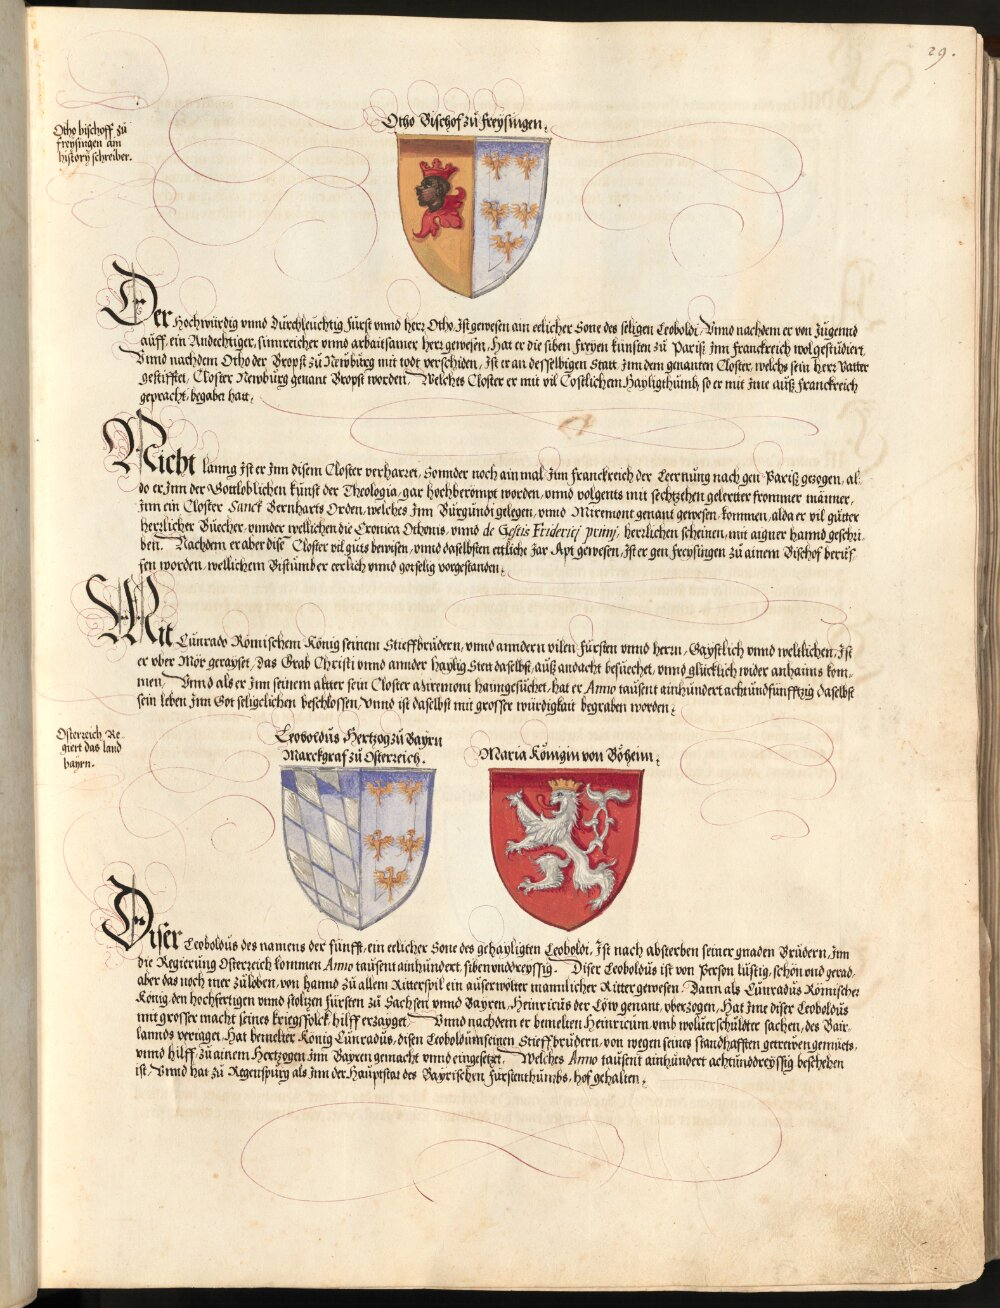 29.
Otho Bischof zů Freÿsingen.
Otho bischoff zů
freÿsingen ain
historÿ schreiber.
Der Hochwürdig vnnd Dürchleüchtig Fürst vnnd herr Otho, Ist gewesen ain eelicher Sone des seligen Leoboldi, Vnnd nachdem er von Jugennd
auff, ein Andechtiger, sinnreicher vnnd arbaitsamer herr gewesen, Hat er die siben Freyen künsten zů Pariß Jnn Franckreich wol gestüdiert.
Vnnd nachdem Otho der Bropst zů Newbürg mit todt verschiden, Ist er an desselbigen Statt Jnn dem genanten Closter, welchs sein herr Vatter
gestifftet, Closter Newbürg genant Bropst worden. Welches Closter er mit vil Costlichen Hayligthümb, so er mit Jme auß Franckreich
gepracht, begabet hatt.
Nicht lanng Ist er Jnn disem Closter verharret, Sonnder noch ain mal Jnn Franckreich der Leernung nach gen Pariß gezogen, al-
do er Jnn der Gottloblichen kunst der Theologia, gar hochberömpt worden, vnnd volgents mit sechtzehen geleerter frommer männer,
Jnn ein Closter Sanct Bernharts Orden, welches Jnn Bürgündi gelegen, vnnd Miremont genant gewesen, kommen, alda er vil gütter
herrlicher Büecher, vnnder wellichen die Cronica Othonis, vnnd de Gestis Friderici primi, herrlichen scheinen, mit aigner hannd geschri-
ben. Nachdem er aber dise Closter vil güts bewisen, vnnd daselbsten ettlich Jar Apt gewesen, Ist er gen Freysingen zů ainem Bischof berüf-
fen worden, wellichem Bistümb er eerlich vnnd gotselig vorgestanden.
Mit Cünrado Römischem König seinem Stieffbrüdern, vnnd anndern vilen Fürsten vnnd herrn, Gaystlich vnnd weltlichen, Ist
er vber Mör gerayset, Das Grab Christi vnnd annder haylig Sten daselbst, auß andacht besüechet, vnnd glücklich wider anhaims kom-
men. Vnnd als er Jnn seinem alter sein Closter Miremont haimgesüchet, hat er Anno taüsent ainhündert achtundfünfftzig daselbst
sein leben Jnn Got seligclichen beschlossen, Vnnd ist daselbst mit grosser würdigkait begraben worden.
Osterreich Re-
giert das land
bayrn.
Leopoldüs Hertzog zů Bayrn
Marckgraf zů Osterreich.
Maria Königin von Böheim.
Diser Leoboldüs des namens der fünfft, ein eelicher Sone des gehayligten Leoboldi, Ist nach absterben seiner gnaden Brüdern, Jnn
die Regierüng Osterreich kommen Anno taüsent ainhündert, sibenvnddreyssig. Diser Leoboldüs ist von Person lüstig, schön vnd gerad,
aber das noch mer züloben, von hannd zü allem Ritterspil ein außerwölter mannlicher Ritter gewesen. Dann als Cünradüs Römischer
König, den hochfertigen vnnd stoltzen Fürsten zü Sachsen vnnd Bayren, Heinricüs der Löw genant, vberzogen, Hat Jme diser Leoboldüs
mit grosser macht seines kriegsfolck, hilff erzayget. Vnnd nachdem er bemelten Heinricüm, vmb wolverschüldter sachen, des Bair-
lannds veriaget, Hat bemelter König Cünradüs, disen Leoboldüm seinen Stieffbrüdern, von wegen seines standhafften getrewen gemüets,
vnnd hilff, zü ainem Hertzogen Jnn Bayren gemacht vnnd eingesetzt. Welches Anno taüsent ainhündert achtünddreyssig beschehen
ist. Vnnd hat zü Regenspürg als Jnn der Hauptstat des Bayrischen Fürstenthümbs, hof gehalten.